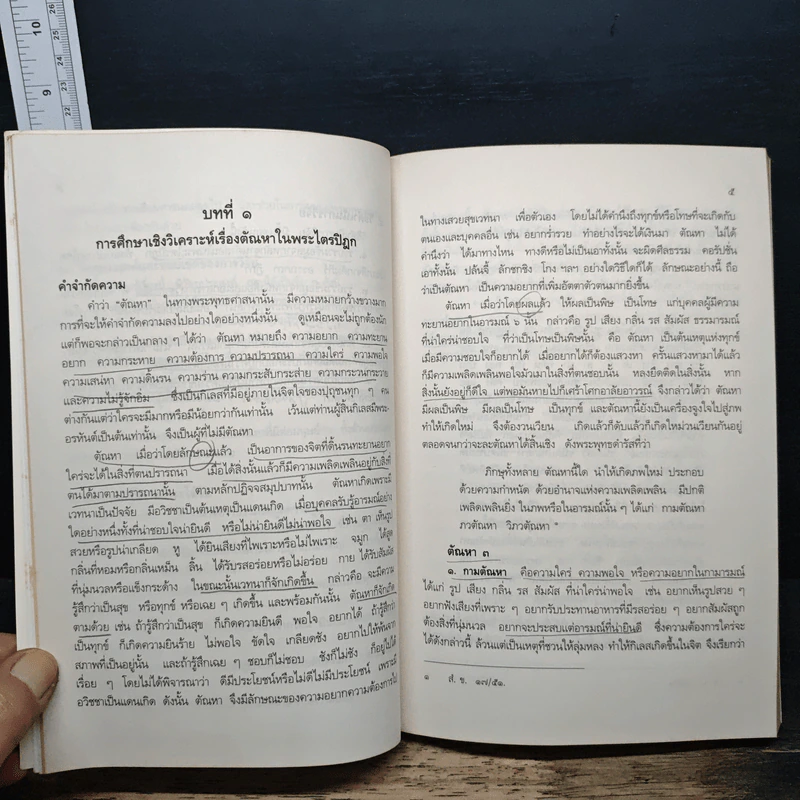 10
26
25
24
9
23
22
บทที่ ๑
การศึกษาเชิงวิเคราะห์เรื่องตัณหาในพระไตรปิฎก
คำจำกัดความ
คำว่า "ตัณหา" ในทางพระพุทธศาสนานั้น มีความหมายกว้างขวางมาก
การที่จะให้คำจำกัดความลงไปอย่างใดอย่างหนึ่งนั้น ดูเหมือนจะไม่ถูกต้องนัก
แต่ก็พอจะกล่าวเป็นกลาง ๆ ได้ว่า ตัณหา หมายถึง ความอยาก ความทะยาน
อยาก ความกระหาย ความต้องการ ความปรารถนา ความใคร่ ความพอใจ
ความเสน่หา ความดิ้นรน ความร่าน ความกระสับกระส่าย ความกระวนกระวาย
และความไม่รู้จักอิ่ม ซึ่งเป็นกิเลสที่มีอยู่ภายในจิตใจของปุถุชนทุก ๆ คน
ต่างกันแต่ว่าใครจะมีมากหรือมีน้อยกว่ากันเท่านั้น เว้นแต่ท่านผู้สิ้นกิเลสมีพระ
อรหันต์เป็นต้นเท่านั้น จึงเป็นผู้ที่ไม่มีตัณหา
ตัณหา เมื่อว่าโดยลักษณะแล้ว เป็นอาการของจิตที่ดิ้นรนทะยานอยาก
ใคร่จะได้ในสิ่งที่ตนปรารถนา เมื่อได้สิ่งนั้นแล้วก็มีความเพลิดเพลินอยู่กับสิ่งที่
ตนได้มาตามปรารถนานั้น ตามหลักปฏิจจสมุปบาทนั้น ตัณหาเกิดเพราะมี
เวทนาเป็นปัจจัย มีอวิชชาเป็นต้นเหตุเป็นแดนเกิด เมื่อบุคคลรับรู้อารมณ์อย่าง
ใดอย่างหนึ่งทั้งที่น่าชอบใจน่ายินดี หรือไม่น่ายินดีไม่น่าพอใจ เช่น ตา เห็นรูป
สวยหรือรูปน่าเกลียด หู ได้ยินเสียงที่ไพเราะหรือไม่ไพเราะ จมูก ได้สูด
กลิ่นที่หอมหรือกลิ่นเหม็น ลิ้น ได้รับรสอร่อยหรือไม่อร่อย กาย ได้รับสัมผัส
ที่นุ่มนวลหรือแข็งกระด้าง ในขณะนั้นเวทนาก็จักเกิดขึ้น กล่าวคือ จะมีความ
รู้สึกว่าเป็นสุข หรือทุกข์ หรือเฉย ๆ เกิดขึ้น และพร้อมกันนั้น ตัณหาก็จักเกิด
ตามด้วย เช่น ถ้ารู้สึกว่าเป็นสุข ก็เกิดความยินดี พอใจ อยากได้ ถ้ารู้สึกว่า
เป็นทุกข์ ก็เกิดความยินร้าย ไม่พอใจ ขัดใจ เกลียดชัง อยากไปให้พ้นจาก
สภาพที่เป็นอยู่นั้น และถ้ารู้สึกเฉย ๆ ชอบก็ไม่ชอบ ชังก็ไม่ชัง ก็อยู่ไปได้
เรื่อย ๆ โดยไม่ได้พิจารณาว่า ดีมีประโยชน์หรือไม่ดีไม่มีประโยชน์ เพราะมี
อวิชชาเป็นแดนเกิด ดังนั้น ตัณหา จึงมีลักษณะของความอยากความต้องการไป
๕
ในทางเสวยสุขเวทนา เพื่อตัวเอง โดยไม่ได้คำนึงถึงทุกข์หรือโทษที่จะเกิดกับ
ตนเองและบุคคลอื่น เช่น อยากร่ำรวย ทำอย่างไรจะได้เงินมา ตัณหา ไม่ได้
คำนึงว่า ได้มาทางไหน ทางดีหรือไม่เอาทั้งนั้น จะผิดศีลธรรม คอรัปชั่น
เอาทั้งนั้น ปล้นจี้ ลักชกชิง โกง ฯลฯ อย่างใดวิธีใดก็ได้ ลักษณะอย่างนี้ ถือ
ว่าเป็นตัณหา เป็นความอยากที่เพิ่มอัตตาตัวตนมากยิ่งขึ้น
ตัณหา เมื่อว่าโดยผลแล้ว ให้ผลเป็นพิษ เป็นโทษ แก่บุคคลผู้มีความ
ทะยานอยากในอารมณ์ ๖ นั้น กล่าวคือ รูป เสียง กลิ่น รส สัมผัส ธรรมารมณ์
ที่น่าใคร่น่าชอบใจ ที่ว่าเป็นโทษเป็นพิษนั้น คือ ตัณหา เป็นต้นเหตุแห่งทุกข์
เมื่อมีความชอบใจก็อยากได้ เมื่ออยากได้ก็ต้องแสวงหา ครั้นแสวงหามาได้แล้ว
ก็มีความเพลิดเพลินพอใจมัวเมาในสิ่งที่ตนชอบนั้น หลงยึดติดในสิ่งนั้น หาก
สิ่งนั้นยังอยู่ก็ดีใจ แต่พอมันหายไปก็เศร้าโศกอาลัยอาวรณ์ จึงกล่าวได้ว่า ตัณหา
มีผลเป็นพิษ มีผลเป็นโทษ เป็นทุกข์ และตัณหานี้ยังเป็นเครื่องจูงใจไปสู่ภพ
ทำให้เกิดใหม่ จึงต้องวนเวียน เกิดแล้วก็ดับแล้วก็เกิดใหม่วนเวียนกันอยู่
ตลอดจนกว่าจะละตัณหาได้สิ้นเชิง ดังพระพุทธดำรัสที่ว่า
ภิกษุทั้งหลาย ตัณหานี้ใด นำให้เกิดภพใหม่ ประกอบ
ด้วยความกำหนัด ด้วยอำนาจแห่งความเพลิดเพลิน มีปกติ
เพลิดเพลินยิ่ง ในภพหรือในอารมณ์นั้น ๆ ได้แก่ กามตัณหา
ภวตัณหา วิภวตัณหา ๑
ตัณหา ๓
๑. กามตัณหา คือความใคร่ ความพอใจ หรือความอยากในกามารมณ์
ได้แก่ รูป เสียง กลิ่น รส สัมผัส ที่น่าใคร่น่าพอใจ เช่น อยากเห็นรูปสวย ๆ
อยากฟังเสียงที่เพราะ ๆ อยากรับประทานอาหารที่มีรสอร่อย ๆ อยากสัมผัสถูก
ต้องสิ่งที่นุ่มนวล อยากจะประสบแต่อารมณ์ที่น่ายินดี ซึ่งความต้องการใคร่จะ
ได้ดังกล่าวนี้ ล้วนแต่เป็นเหตุที่ชวนให้ลุ่มหลง ทำให้กิเลสเกิดขึ้นในจิต จึงเรียกว่า
๑ สํ. ข. ๑๗/๕๑.